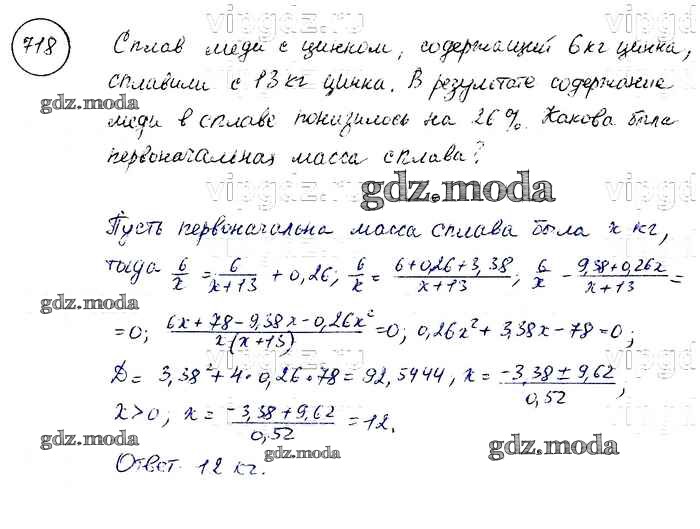 vipgdz.ru vipgdz.ru
718
Сплав меди с цинком, содержащий 6 кг цинка,
сплавили с 13 кг цинка. В результате содержание
gdz.moda
меди в сплаве понизилось на 26%. Какова была
первоначальная масса сплава?
vipgdz.ru vipgdz.ru
gdz.moda
Пусть первоначальна масса сплава была x кг,
тогда 6/x = 6/(x+13) + 0,26; 6/x = (6+0,26+3,38)/(x+13); 6/x - (9,38+0,26x)/(x+13) =
gdz.moda
= 0; (6x+78-9,38x-0,26x²)/(x(x+13)) = 0; 0,26x²+3,38x-78=0;
D = 3,38²+4·0,26·78 = 92,5444, x = (-3,38±9,62)/0,52,
x>0; x = (-3,38+9,62)/0,52 = 12.
gdz.moda
gdz.moda
Ответ. 12 кг.
gdz.moda